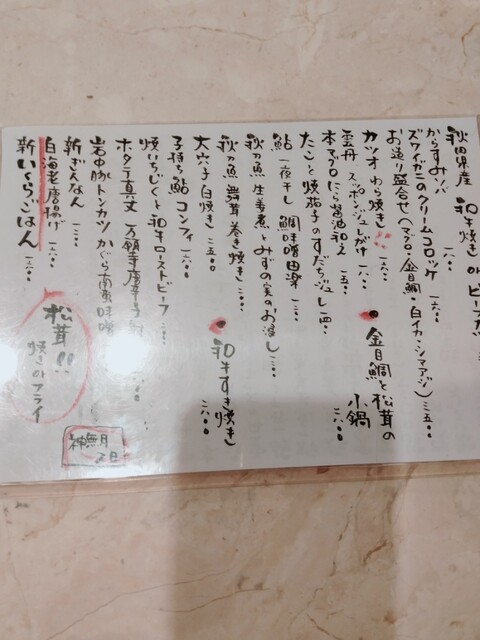 秋田県産 和牛焼き or ビーフカ
からすみソバ 一六〇〇
ズワイガニのクリームコロッケ 一六〇〇
お造り盛合せ(マグロ・金目鯛・白イカ・シマアジ) 二五〇〇
カツオ わら焼き 一八〇〇
金目鯛と松茸の小鍋 二八〇〇
雲丹 スポンジ
本マグロ にら醤油和え 一五〇〇
たこと焼茄子のすだち浸し 一四〇〇
鮎 一夜干し 鯛味噌田楽
秋刀魚 生姜煮とみずの実のお浸し
秋刀魚 舞茸巻き焼き
和牛すき焼き 二六〇〇
大穴子 白焼き 二五〇〇
子持ち鮎 コンフィ
焼いちじくと和牛ローストビーフ
ホタテ真丈 万願寺唐辛子
岩中豚 トンカツ かぐら南蛮味噌
新ぎんなん
白海老唐揚げ
新いくらごはん
松茸!!
焼き or フライ
神無月
2日